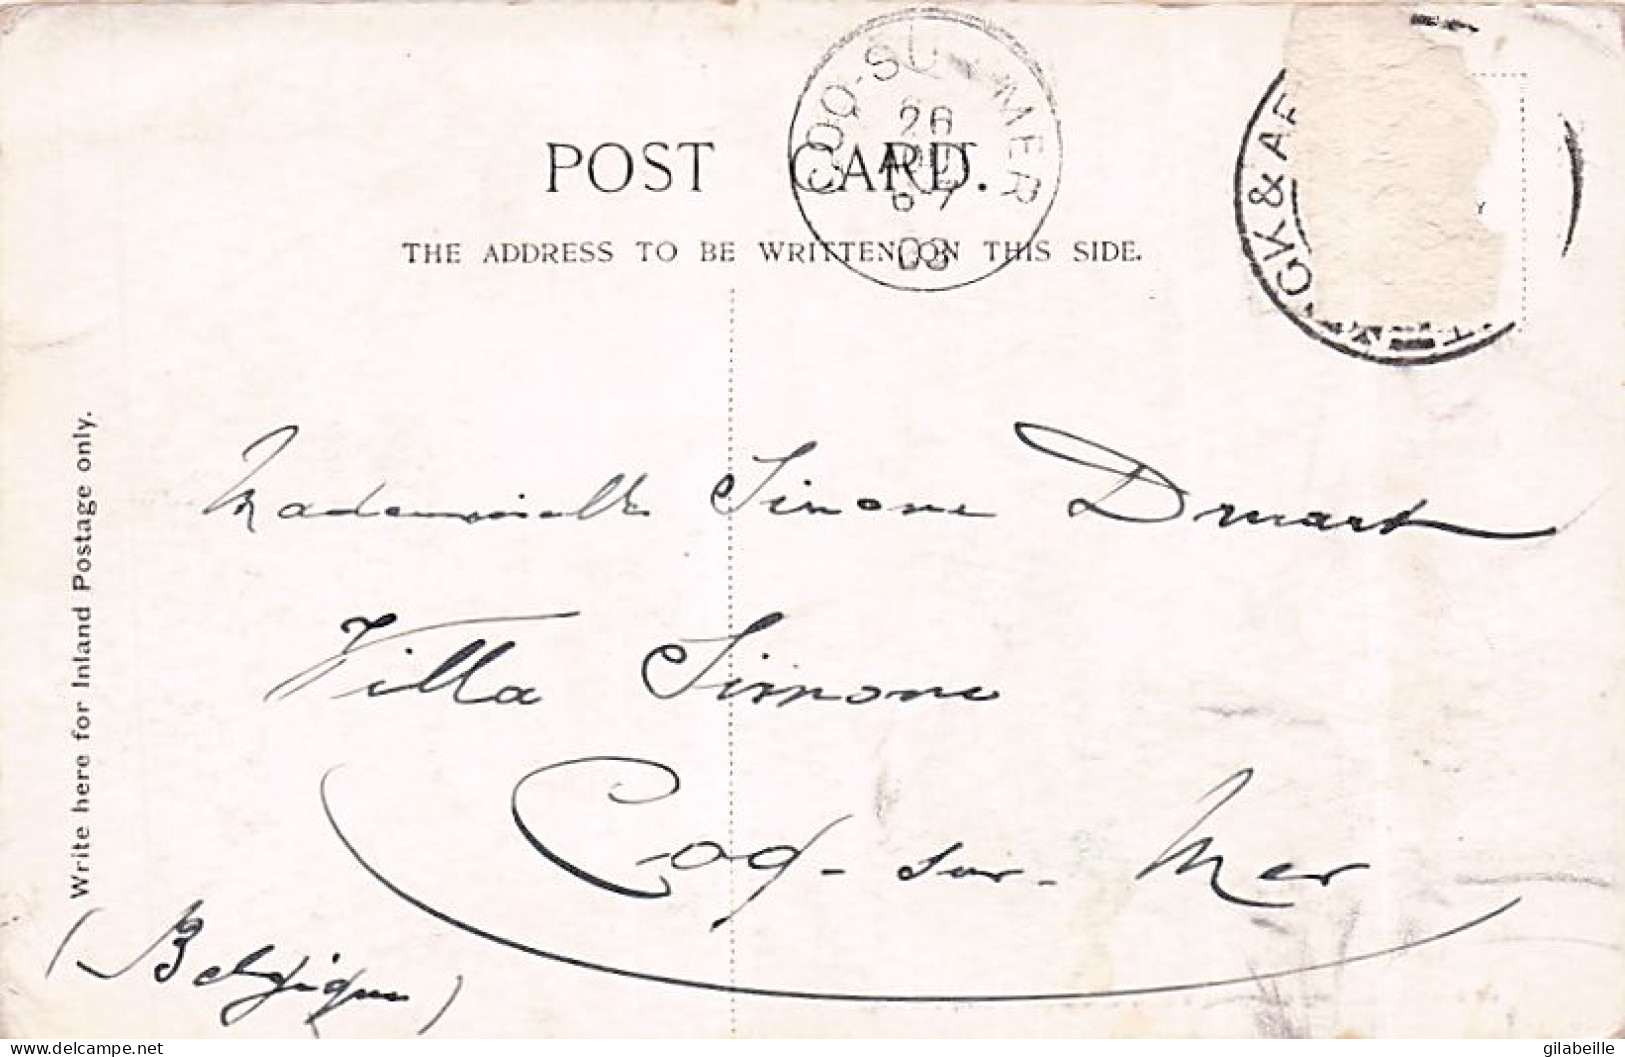 POST CARD.
COQ-SUR-MER
26
AOUT
6-7
03
GK & AR
THE ADDRESS TO BE WRITTEN ON THIS SIDE.
Write here for Inland Postage only.
Mademoiselle Simone Druart
Villa Simone
Coq-sur-Mer
(Belgique)
www.delcampe.net
gilabeille